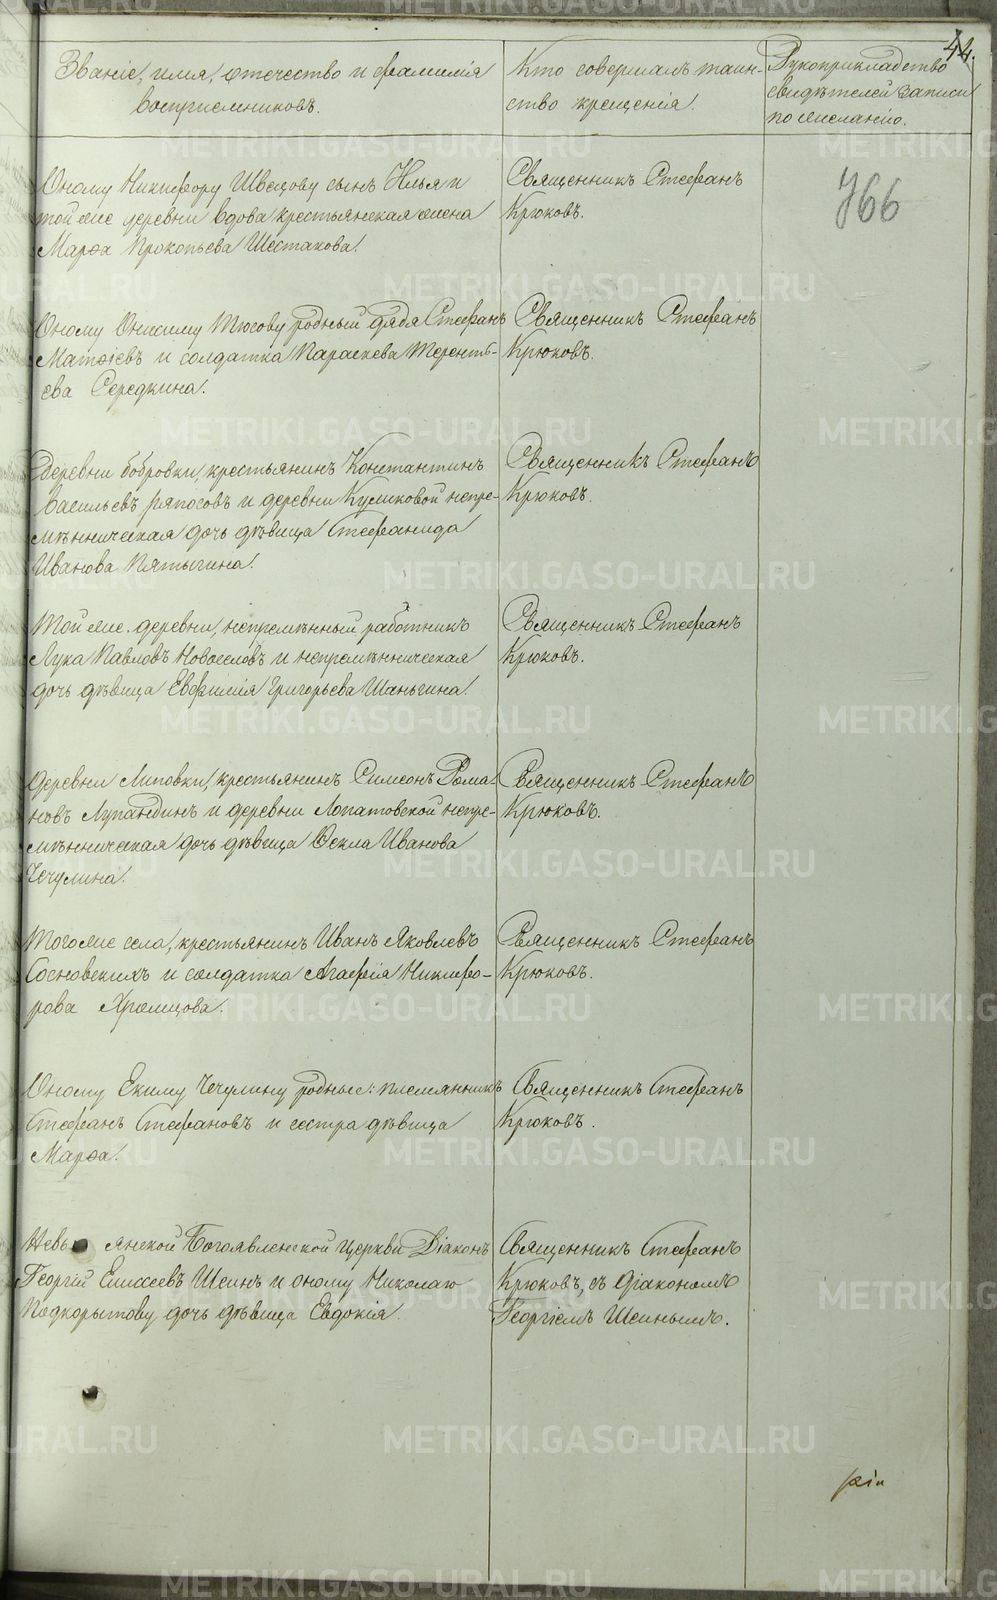 44.
Званіе, имя, отечество и фамилія
воспріемниковъ.
Кто совершалъ таин-
ство крещенія.
Рукоприкладство
свидѣтелей записи
по желанію.
766
Оному Никифору Швецову сынъ Илья и
той же деревни вдова крестьянская жена
Марѳа Прокопьева Шестакова.
Священникъ Стефанъ
Крюковъ.
Оному Онисиму Тюсову родный дядя Стефанъ
Матѳіевъ и солдатка Параскева Теренть-
ева Середкина.
Священникъ Стефанъ
Крюковъ.
Деревни бобровки, крестьянинъ Константинъ
Васильевъ Ряпосовъ и деревни Куликовой непре-
мѣнническая дочь дѣвица Стефанида
Иванова Пятыгина.
Священникъ Стефанъ
Крюковъ.
Той же деревни, непремѣнный работникъ
Лука Павловъ Новоселовъ и непремѣнническая
дочь дѣвица Евфимія Григорьева Шаньгина.
Священникъ Стефанъ
Крюковъ.
Деревни Липовки, крестьянинъ Симеонъ Рома-
новъ Лупандинъ и деревни Лопатовской непре-
мѣнническая дочь дѣвица Ѳекла Иванова
Чечулина.
Священникъ Стефанъ
Крюковъ.
Того же села, крестьянинъ Иванъ Яковлевъ
Сосновскихъ и солдатка Агафія Никифо-
рова Храмцова.
Священникъ Стефанъ
Крюковъ.
Оному Екиму Чечулину родные: племянникъ
Стефанъ Стефановъ и сестра дѣвица
Марѳа.
Священникъ Стефанъ
Крюковъ.
Невь янской Богоявленской церкви Діаконъ
Георгій Елисеевъ Шеинъ и оному Николаю
Подкорытову дочь дѣвица Евдокія.
Священникъ Стефанъ
Крюковъ, съ діакономъ
Георгіемъ Шеинымъ.
METRIKI.GASO-URAL.RU